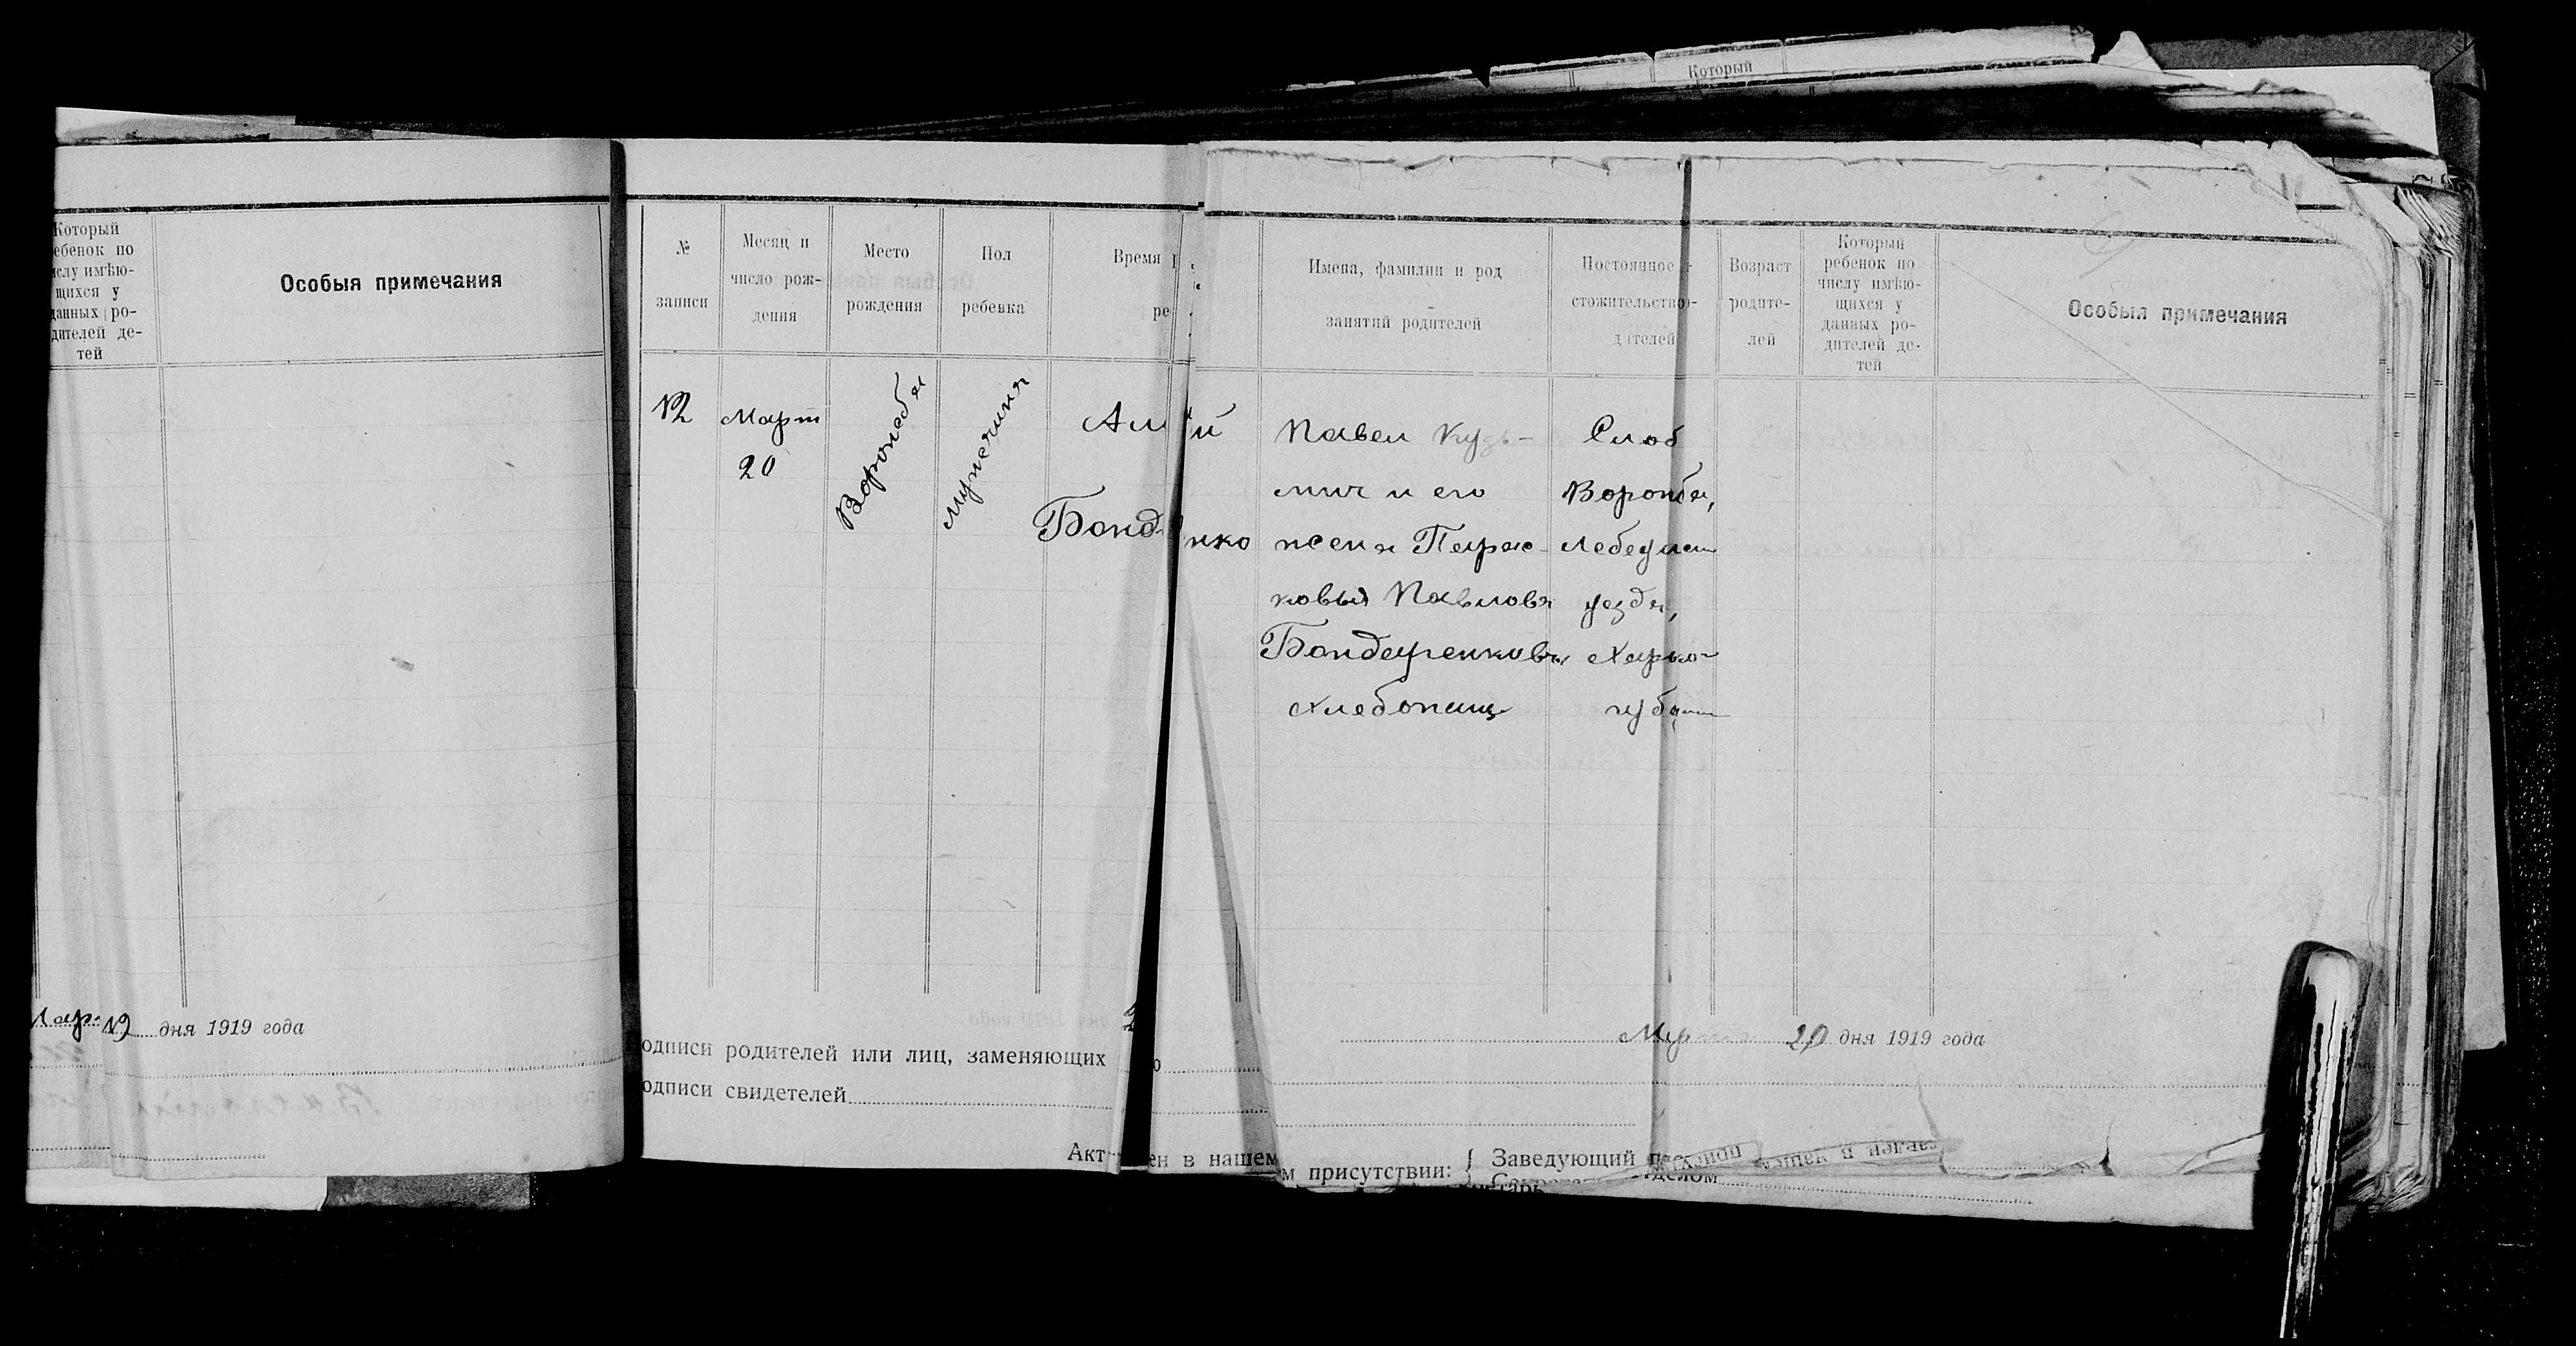 Который
Который
ебенок по
ислу имѣю-
щихся у
данных ро-
дителей де-
тей
Особыя примечания
№
записи
Месяц и
число рож-
дения
Место
рождения
Пол
ребенка
Время
ре
Имена, фамилии и род
занятий родителей
Постоянное
стожительство
дителей
Возраст
родите-
лей
Который
ребенок по
числу имѣю-
щихся у
данных ро-
дителей де-
тей
Особыя примечания
12
Март
20
Воронеба
Мужчина
Ал й
Бонд нко
Павел Кузь-
мич и его
жена Парас-
ковья Павлова
Бондаренкова
хлебопащ
Слоб
Воронба,
Лебедин
уезда,
Харько
губерн
Мар 19 дня 1919 года
Марта 20 дня 1919 года
одписи родителей или лиц, заменяющих
одписи свидетелей
Акт ен в нашем
м присутствии:
Заведующий
делом